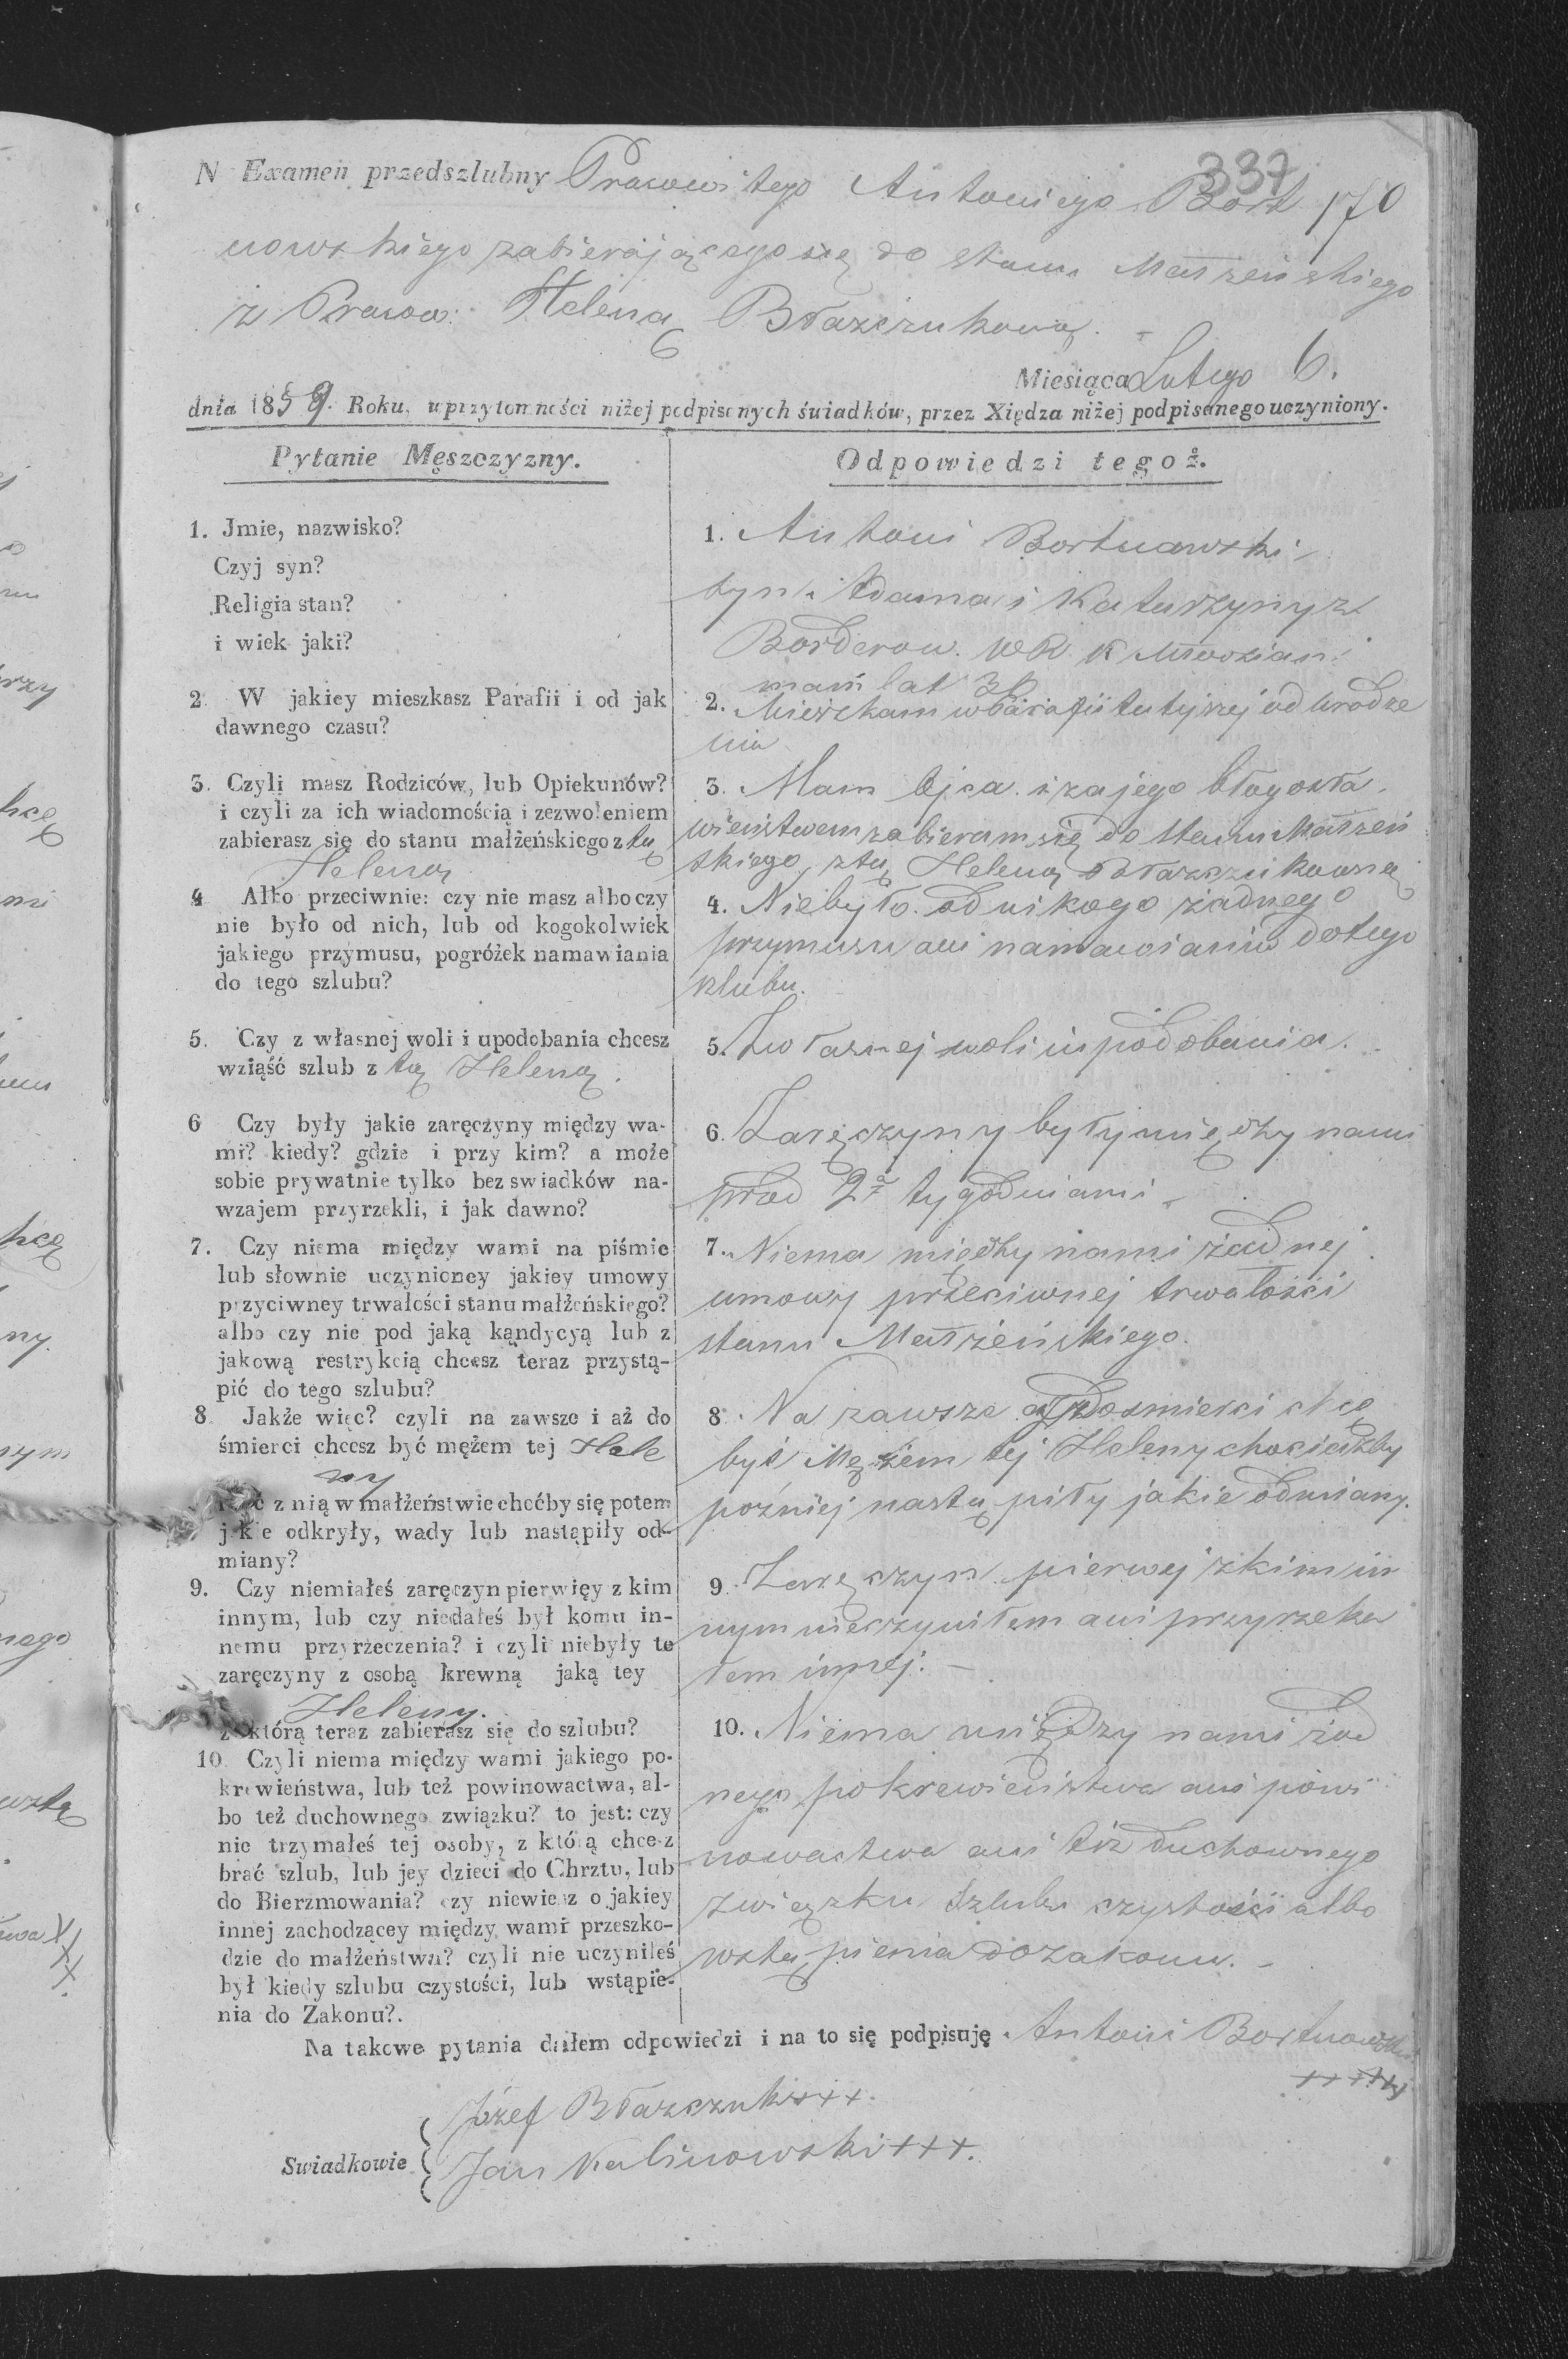 337
N Examen przedszlubny Pracowitego Antoniego Bort 170
nowskiego zabierającego się do stanu Małżeńskiego
z Pracow: Heleną Błaszczukową. -
Miesiąca Lutego 6.
dnia 1859. Roku, uprzytomności niżej podpisanych świadków, przez Xiędza niżej podpisanego uczyniony.
Pytanie Męszczyzny.
1. Jmie, nazwisko?
Czyj syn?
Religia stan?
i wiek jaki?
2. W jakiey mieszkasz Parafii i od jak
dawnego czasu?
3. Czyli masz Rodziców, lub Opiekunów?
i czyli za ich wiadomością i zezwoleniem
zabierasz się do stanu małżeńskiego z tą
Heleną
4 Albo przeciwnie: czy nie masz albo czy
nie było od nich, lub od kogokolwiek
jakiego przymusu, pogróżek namawiania
do tego szlubu?
5. Czy z własnej woli i upodobania chcesz
wziąść szlub z tą Heleną.
6 Czy były jakie zaręczyny między wa-
mi? kiedy? gdzie i przy kim? a może
sobie prywatnie tylko bez swiadków na-
wzajem przyrzekli, i jak dawno?
7. Czy niema między wami na piśmie
lub słownie uczynioney jakiey umowy
przyciwney trwałości stanu małżeńskiego?
albo czy nie pod jaką kąndycyą lub z
jakową restrykcią chcesz teraz przystą-
pić do tego szlubu?
8. Jakże więc? czyli na zawsze i aż do
śmierci chcesz być mężem tej Hele
ny
z nią w małżeństwie choćby się potem
jakie odkryły, wady lub nastąpiły od-
miany?
9. Czy niemiałeś zaręczyn pierwięy z kim
innym, lub czy niedałeś był komu in-
nemu przyrzeczenia? i czyli niebyły te
zaręczyny z osobą krewną jaką tey
Heleny.
z którą teraz zabierasz się do szlubu?
10. Czyli niema między wami jakiego po-
krewieństwa, lub też powinowactwa, al-
bo też duchownego związku? to jest: czy
nie trzymałeś tej osoby, z którą chcesz
brać szlub, lub jey dzieci do Chrztu, lub
do Bierzmowania? czy niewiesz o jakiey
innej zachodzącey między wami przeszko-
dzie do małżeństwa? czyli nie uczyniłeś
był kiedy szlubu czystości, lub wstąpie-
nia do Zakonu?.
Odpowiedzi tegoż.
1. Antoni Bortnowski
syn Adama i Katarzyny z
Borderow. WR K Młodzian
mam lat 30
2. Mieszkam w Parafii tutejszej od urodze
nia
3. Mam Ojca i za jego błogosła
wieństwem zabieram się do stanu Małżeń
skiego, z tą Heleną Błaszczukową
4. Niebyło od nikogo żadnego
przymusu ani namawiania do tego
szlubu.
5. Z własnej woli i upodobania.
6. Zaręczyny były między nami
przed 2a tygodniami -
7. Niema między nami żadnej
umowy przeciwnej trwałości
stanu Małżeńskiego.
8. Na zawsze aż do śmierci chcę
być Mężem tej Heleny chociażby
poźniej nastąpiły jakie odmiany.
9. Zaręczyn pierwej z kim in
nym nieczyniłem ani przyrzeka
łem innej. -
10. Niema między nami żad
nego pokrewieństwa ani powi
nowactwa ani téż duchownego
związku szlubu czystości albo
wstąpienia do zakonu. -
Na takowe pytania dałem odpowiedzi i na to się podpisuję Antoni Bortnowski
+++++
Swiadkowie
Józef Błaszczuk +++.
Jan Kalinowski +++.